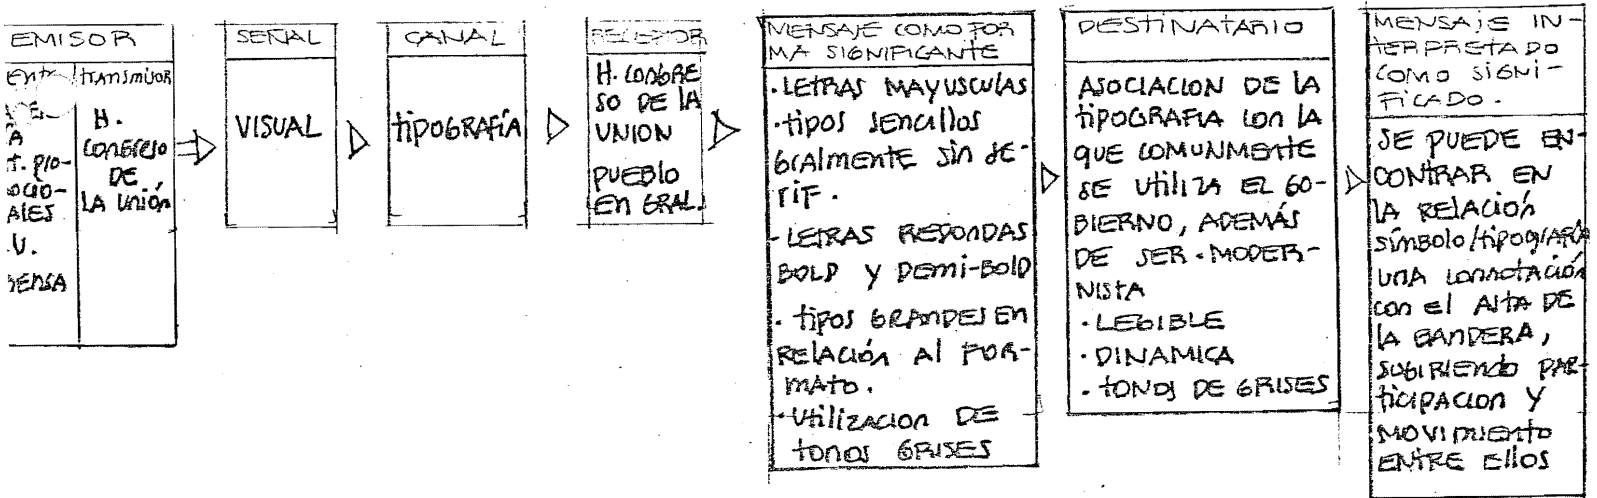 EMISOR
transmisor
H.
CONGRESO
DE
LA UNIÓN
ENSA
SEÑAL
VISUAL
CANAL
TIPOGRAFÍA
RECEPTOR
H. CONGRE
SO DE LA
UNION
PUEBLO
EN GRAL.
MENSAJE COMO FOR
MA SIGNIFICANTE
· LETRAS MAYUSCULAS
· TIPOS SENCILLOS
GRALMENTE SIN SE-
RIF.
- LETRAS REDONDAS
BOLD Y DEMI-BOLD
· TIPOS GRANDES EN
RELACIÓN AL FOR-
MATO.
· UTILIZACION DE
TONOS GRISES
DESTINATARIO
ASOCIACION DE LA
TIPOGRAFIA CON LA
QUE COMUNMENTE
SE UTILIZA EL GO-
BIERNO, ADEMÁS
DE SER · MODER-
NISTA
· LEGIBLE
· DINAMICA
· TONOS DE GRISES
MENSAJE IN-
TERPRETADO
COMO SIGNI-
FICADO.
SE PUEDE EN-
CONTRAR EN
LA RELACIÓN
SÍMBOLO/TIPOGRAFÍA
UNA CONNOTACIÓN
CON EL ASTA DE
LA BANDERA,
SUGIRIENDO PAR-
TICIPACION Y
MOVIMIENTO
ENTRE ELLOS